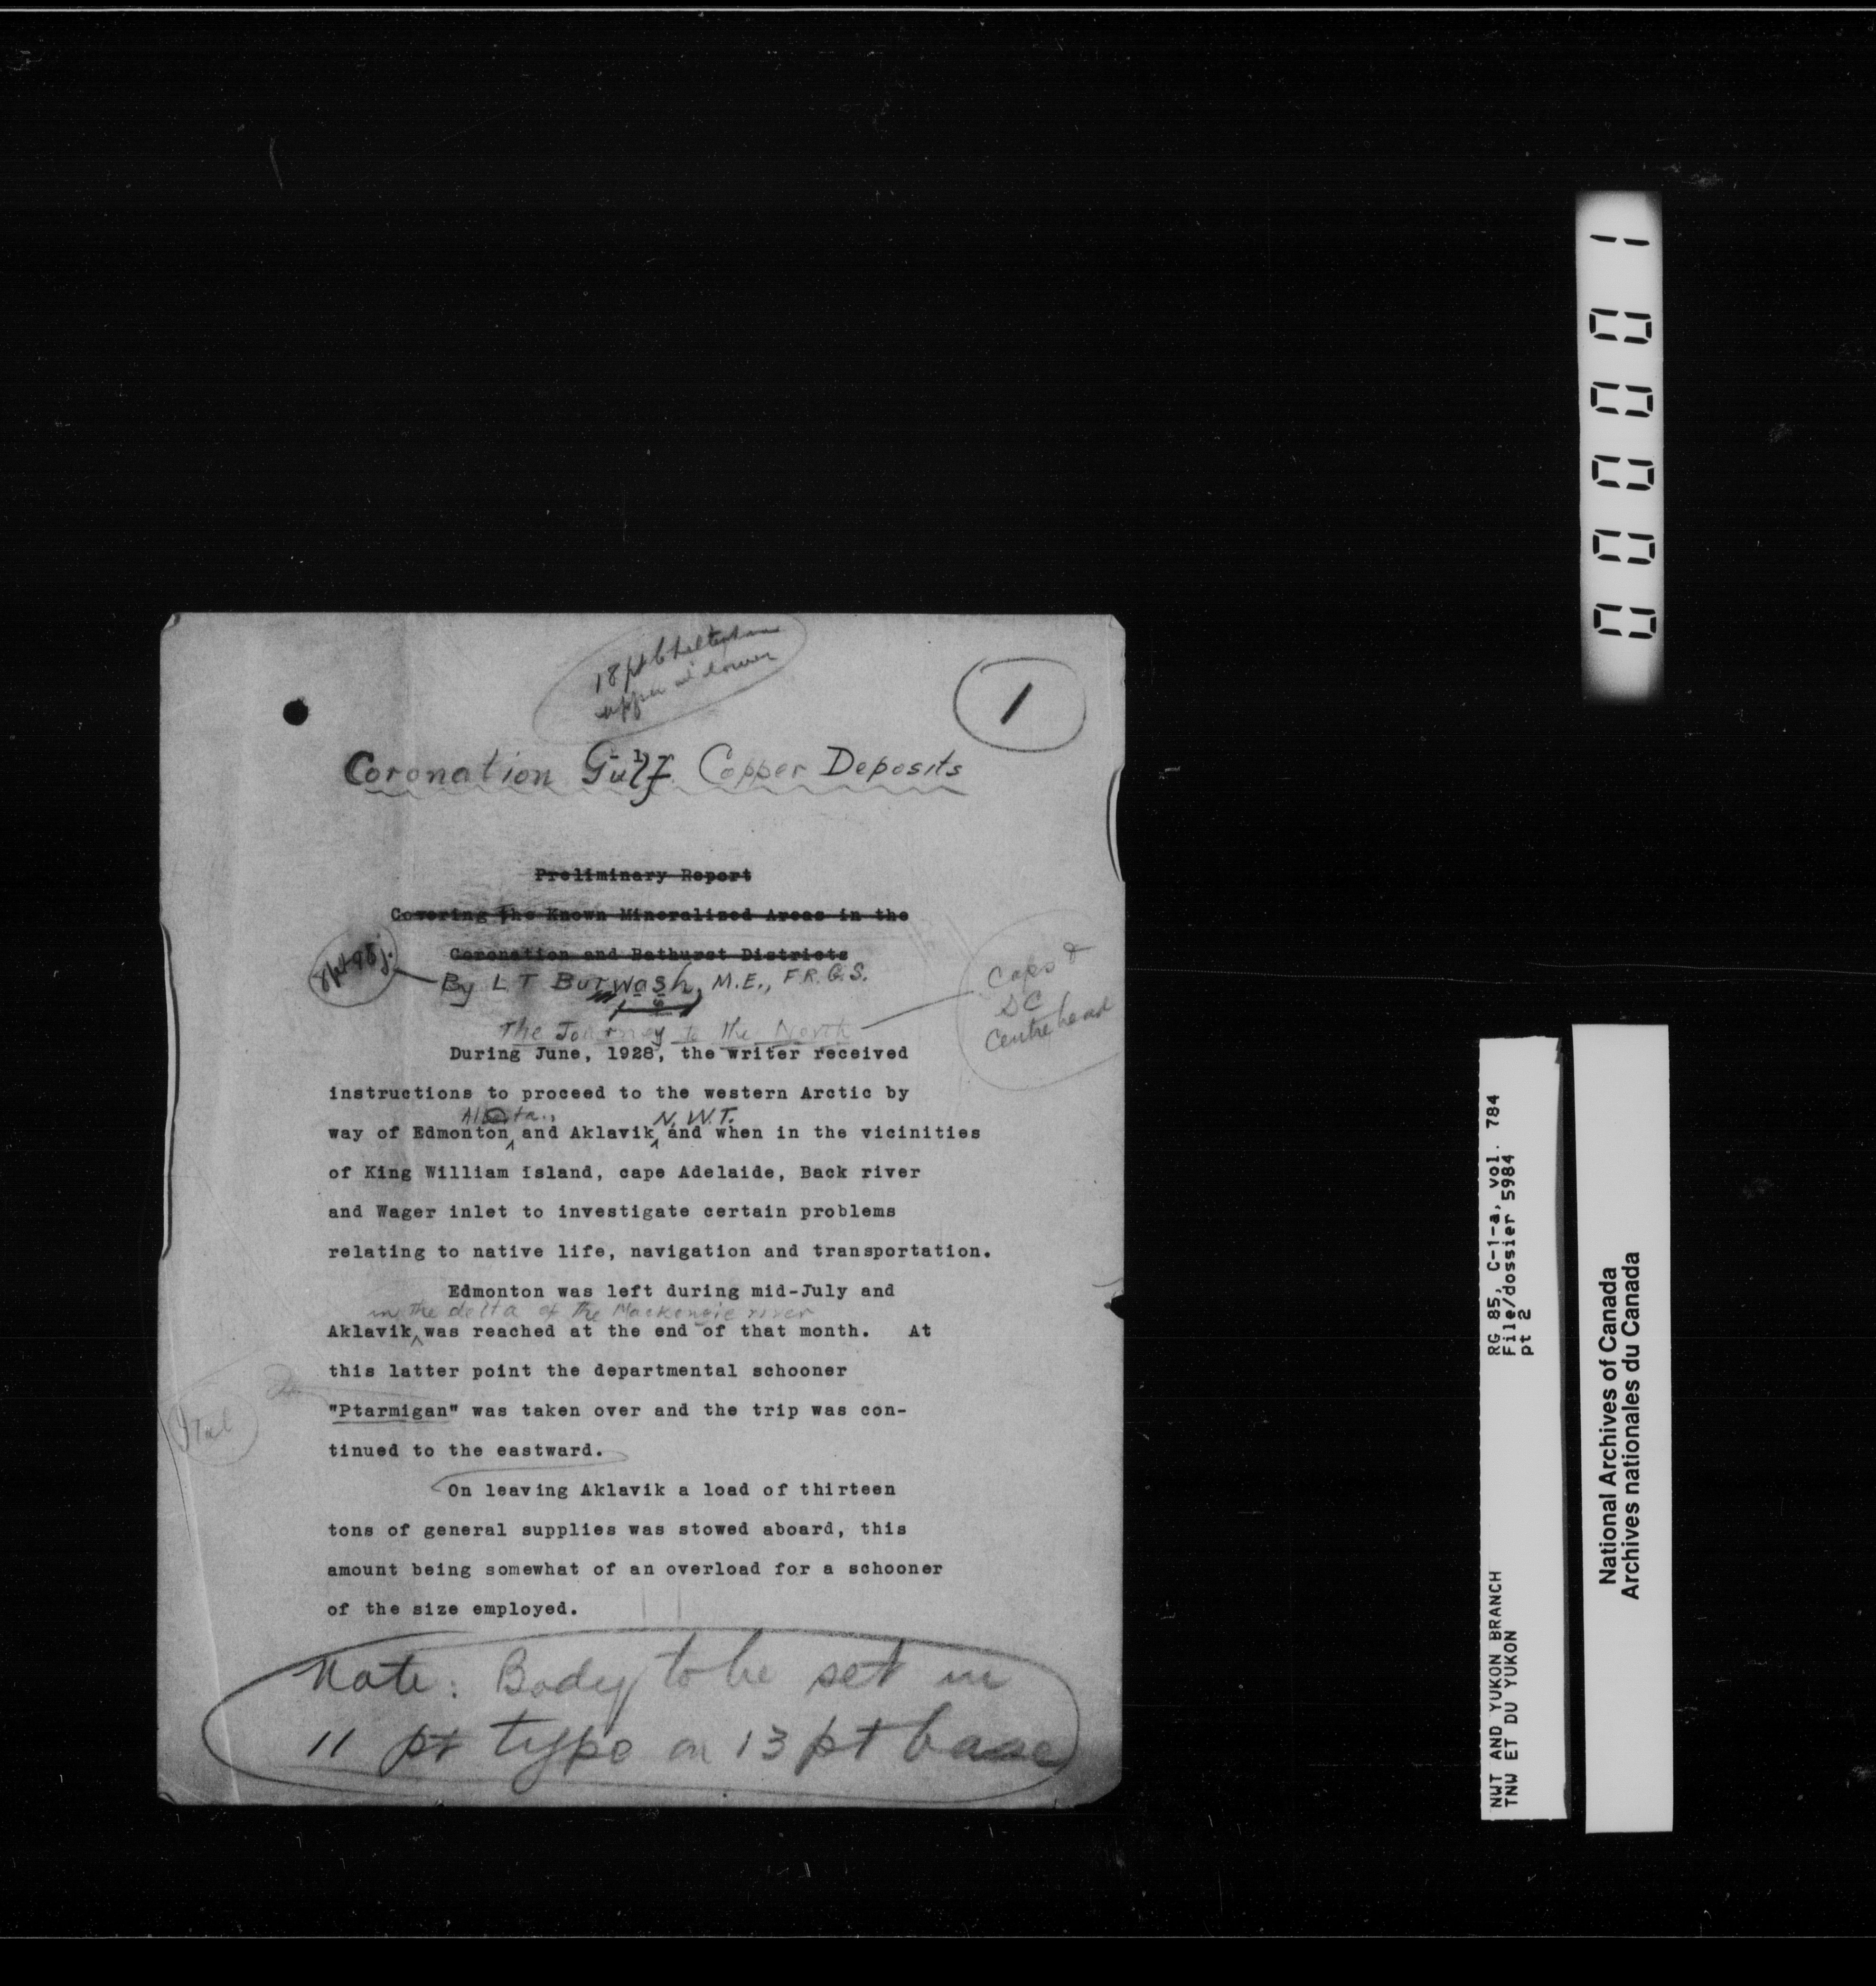 18 pt Cheltenham
upper & lower
1
- 1 -
Coronation Gulf Copper Deposits
Preliminary Report
Covering The Known Mineralized Areas in the
Coronation and Bathurst Districts
By L T Burwash, M.E., F.R.G.S.
Caps &
SC
Centre head
The Journey to the North
During June, 1928, the writer received
instructions to proceed to the western Arctic by
Alberta., N.W.T.
way of Edmonton and Aklavik and when in the vicinities
of King William Island, cape Adelaide, Back river
and Wager inlet to investigate certain problems
relating to native life, navigation and transportation.
Edmonton was left during mid-July and
in the delta of the Mackenzie river
Aklavik was reached at the end of that month. At
this latter point the departmental schooner
Ital
"Ptarmigan" was taken over and the trip was con-
tinued to the eastward.
On leaving Aklavik a load of thirteen
tons of general supplies was stowed aboard, this
amount being somewhat of an overload for a schooner
of the size employed.
Note: Body to be set in
11 pt type on 13 pt base
000001
RG 85, C-1-a, vol. 784
File/dossier 5984
pt 2
NWT AND YUKON BRANCH
TNW ET DU YUKON
National Archives of Canada
Archives nationales du Canada